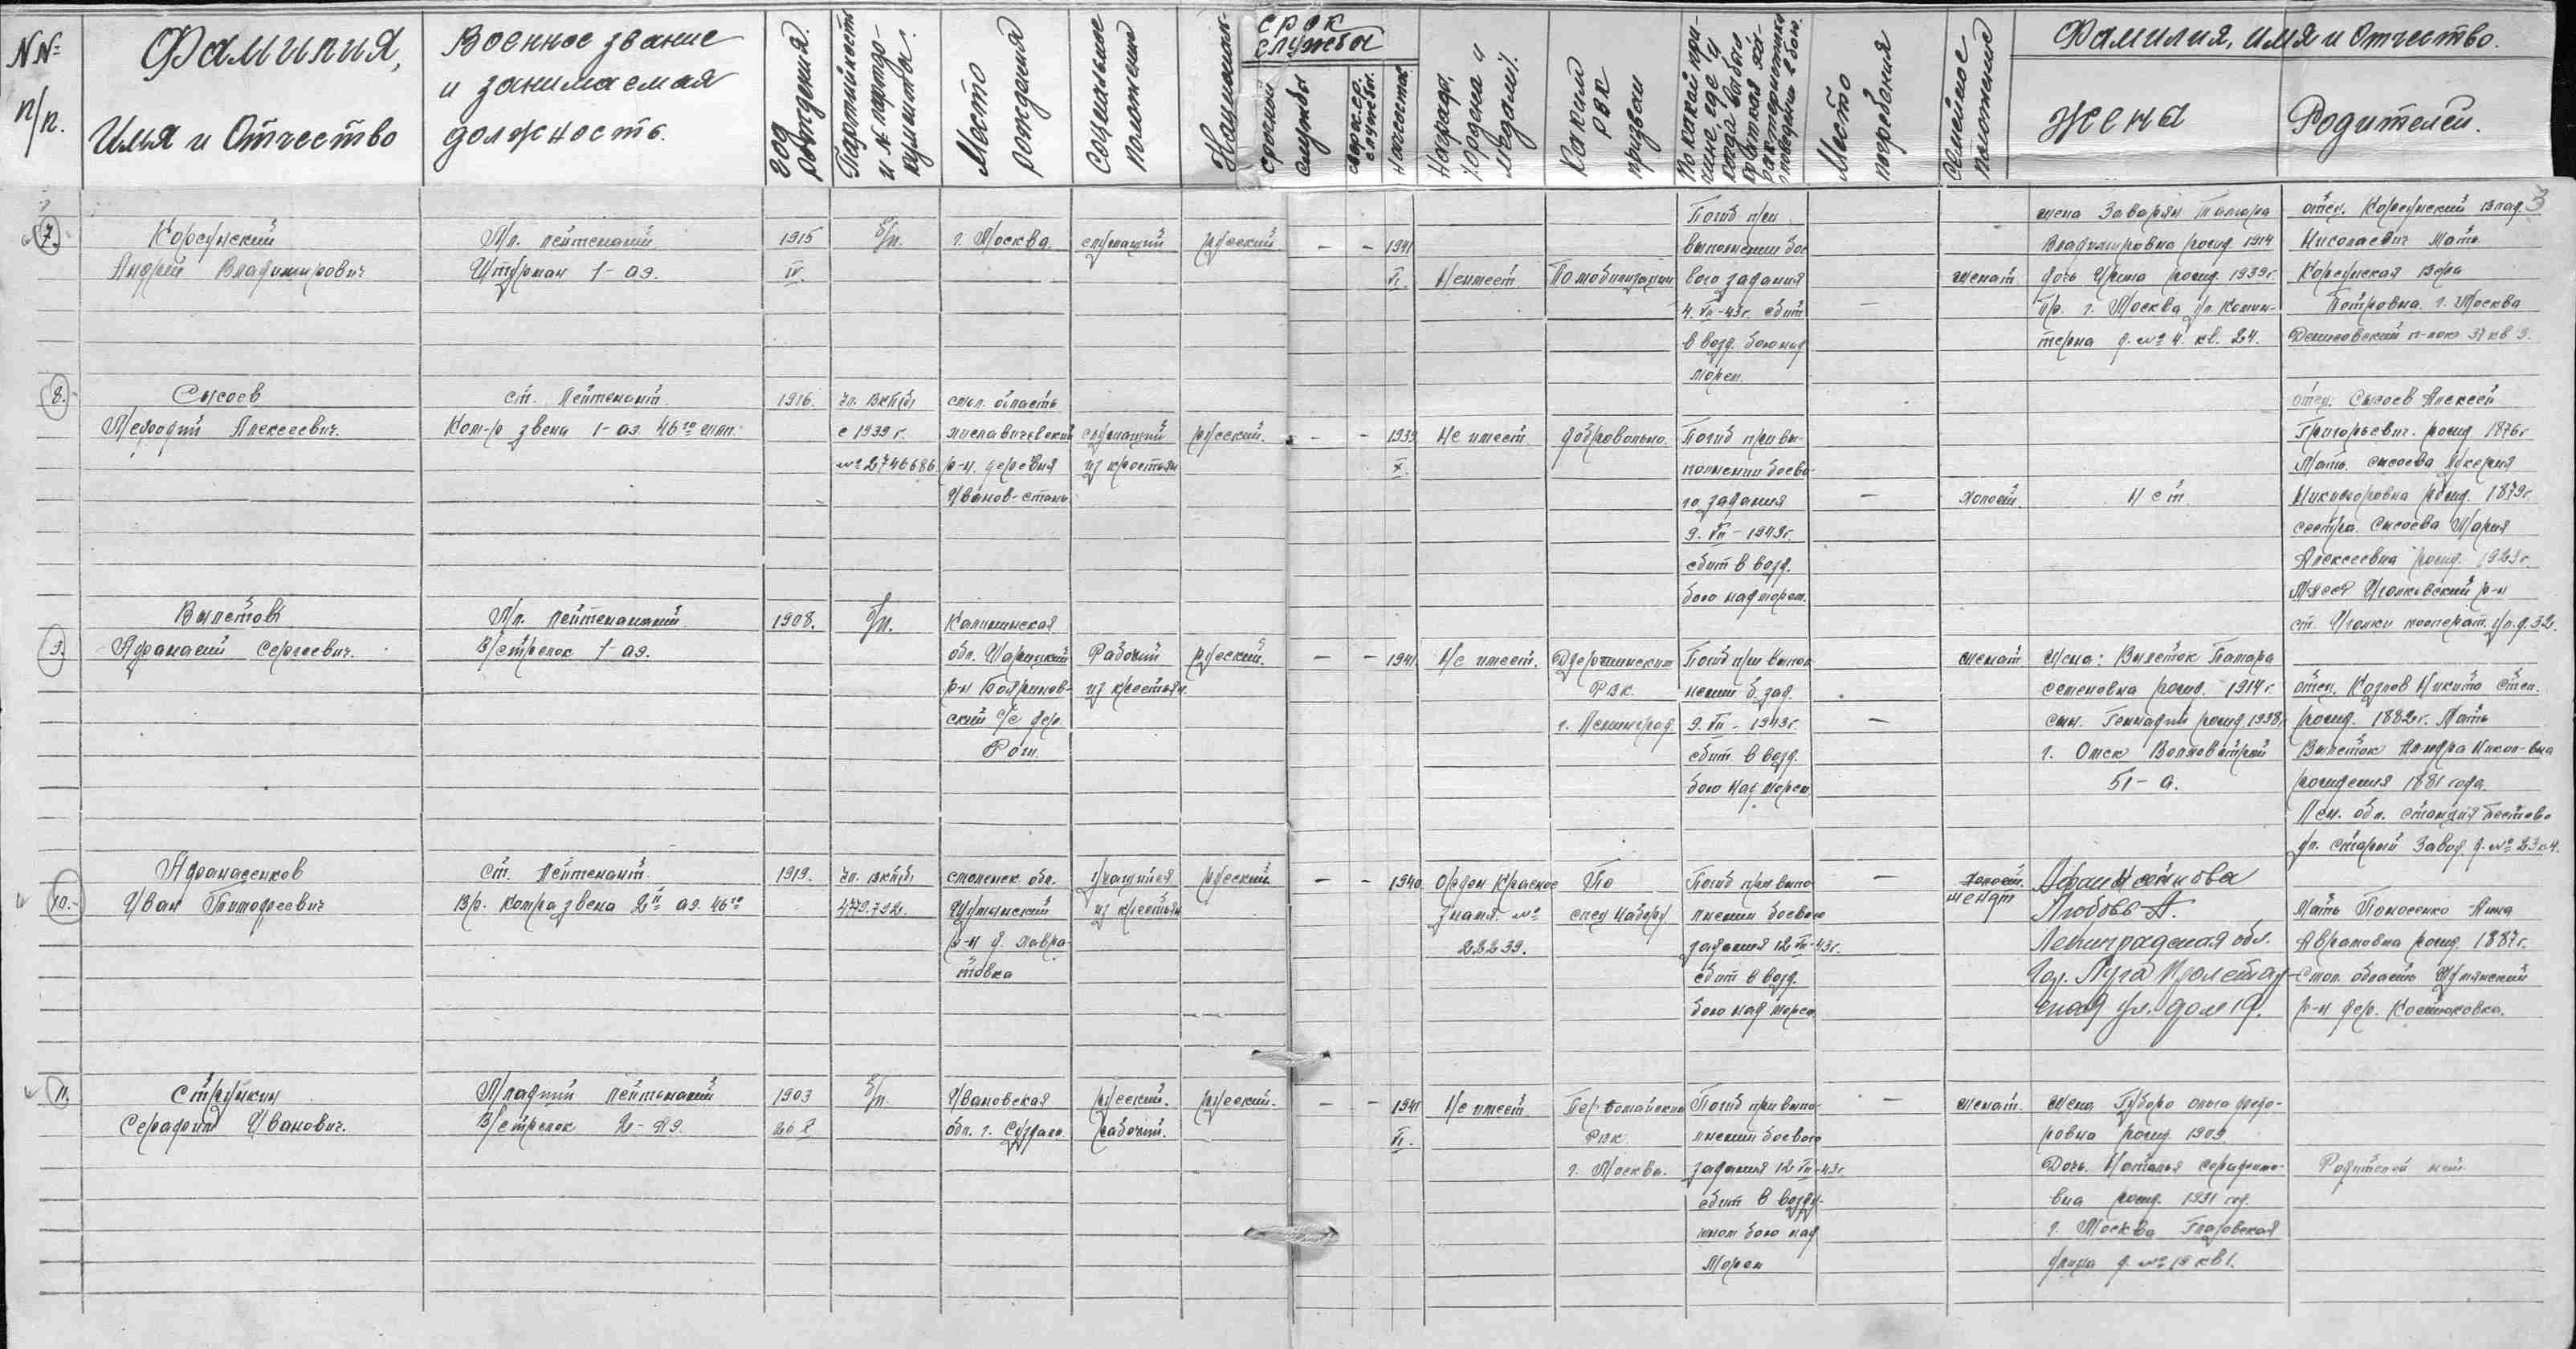 NN= п/п.
Фамилия,
Имя и Отчество
Военное звание
и занимаемая
должность.
год рождения.
Партийность
и № партдо-
кумента.
Место
рождения
социальное
положение
Национальн.
срок
службы
срочной
службы
Награда,
(ордена и
медали).
Каким
РВК
призван
Место
погребения
Семейное
положение
Фамилия, имя и Отчество.
жена
Родителей.
3
7.
Корсунский
Андрей Владимирович
Мл. лейтенант
Штурман 1-аэ.
1915
IV.
б/п.
г. Москва.
служащий
русский
–
–
1941
VI.
Не имеет
По мобилизации
Погиб при
выполнении бое
вого задания
4. VII-43г. сбит
в возд. бою над
морем.
–
женат
жена Заварян Тамара
Владимировна рожд. 1914
дочь Ирина рожд. 1939г.
Пр. г. Москва ул. Комин-
терна д. №4. кв. 24.
отец. Корсунский Влад.
Николаевич Мать
Корсунская Вера
Петровна. г. Москва
8.
Сысоев
Мефодий Алексеевич.
ст. Лейтенант.
Ком-р звена 1-аэ. 46го шап.
1916.
чл. ВКП(б)
с 1939 г.
№2746686
смол. область
р-н. деревня
Иванов-стань
служащий
из крестьян
русский.
–
–
1939
X.
Не имеет.
добровольно.
Погиб при вы-
полнении боево-
го задания
9. VII-1943г.
сбит в возд.
бою над морем.
–
Холост.
Нет
отец. Сысоев Алексей
Григорьевич. рожд 1876г
Мать. Сысоева Лукерия
Никифоровна рожд. 1879г.
сестра. Сысоева Мария
Алексеевна рожд. 1923г
р-н
9.
Вылеток
Афанасий Сергеевич.
Мл. Лейтенант
В/стрелок 1-аэ.
1908.
б/п.
Калининская
обл.
р-н
ский с/с дер.
Рабочий
из крестьян.
русский.
–
–
1941.
Не имеет.
Дзержинским
РВК.
г. Ленинград.
Погиб при выпол
нении б. зад.
9. VII-1943г.
сбит в возд.
бою над морем
–
женат
Жена: Вылеток Тамара
семеновна рожд. 1914г.
сын. Геннадий рожд 1938г
г. Омск
51-а.
отец. Козлов Никита Степ.
рожд. 1882г. Мать
Вылеток
рождения 1881 года
Лен. обл. станция
ул. старый Завод. д. №23
10.-
Афанасенков
Иван Тимофеевич
ст. Лейтенант.
Вр. Ком-ра звена 2й аэ. 46го
1919.
чл. ВКП(б)
4779792.
смоленск. обл.
р-н д. Лавра-
товка
учащийся
из крестьян
русский
–
–
1940
Орден Красное
Знамя. №
22239.
По
спец набору
Погиб при выпо
лнении боевого
задания 12 VII-43г.
сбит в возд.
бою над морем
–
Холост.
женат
Афанасенкова
Любовь А.
Ленинградская обл.
Гор. Луга Пролетар-
ская ул. дом 19.
Мать Поносенко Анна
Абрамовна рожд. 1887г.
Смол. область
р-н дер. Костюковка.
11.
Стрункин
Серафим Иванович.
Младший лейтенант
В/стрелок 2-аэ.
1903
26 X
б/п.
Ивановская
обл. г. Суздаль
русский.
рабочий.
русский.
–
–
1941
VI.
Не имеет.
Первомайским
РВК.
г. Москва.
Погиб при выпо-
лнении боевого
задания 12 VII-43г.
сбит в возду-
шном бою над
Морем
–
женат.
жена ольга федо-
ровна рожд. 1909.
Дочь. Наталья серафимо-
вна рожд. 1931 год.
г. Москва
улица д. №19 кв1.
Родителей нет